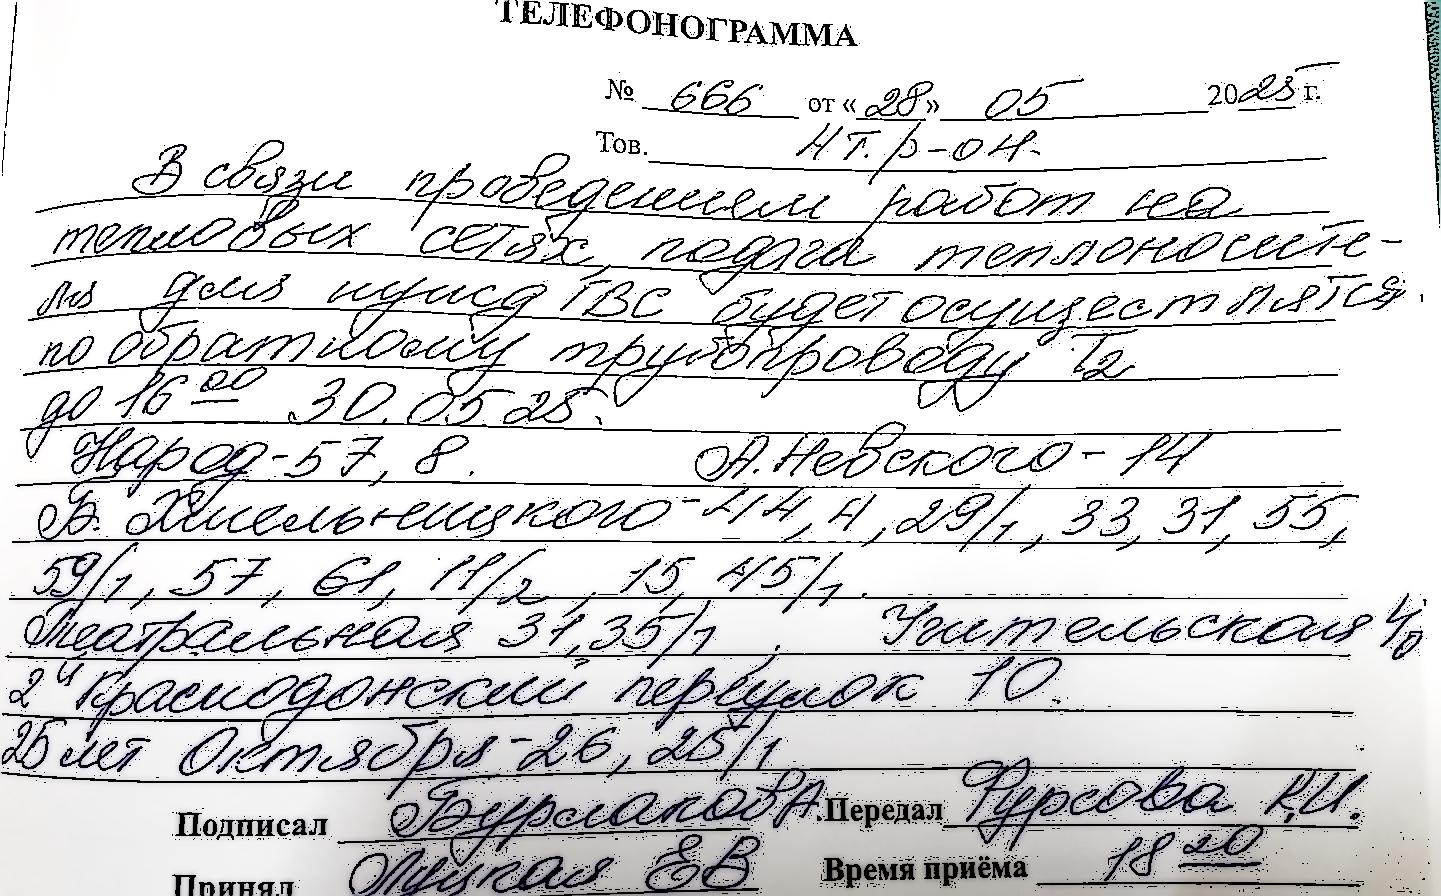 ТЕЛЕФОНОГРАММА
№ 666 от «28» 05 2025 г.
Тов. НТ. р-он.
В связи проведением работ на
тепловых сетях, подача теплоносите-
ля для нужд ГВС будет осуществлятся
по обратному трубопроводу Т2
до 16 00 30.05 25.
Народ-57, 8. А.Невского-14
Б. Хмельницкого-44, 4, 29/1, 33, 31, 55,
59/1, 57, 61, 11/2, 15, 45/1.
Театральная 31, 35/1. Учительская
2й Краснодонский переулок 10.
25 лет Октября-26, 25/1
Подписал Бурлаков А. Передал Фурсова К.И.
Принял ЕВ Время приёма 18 20